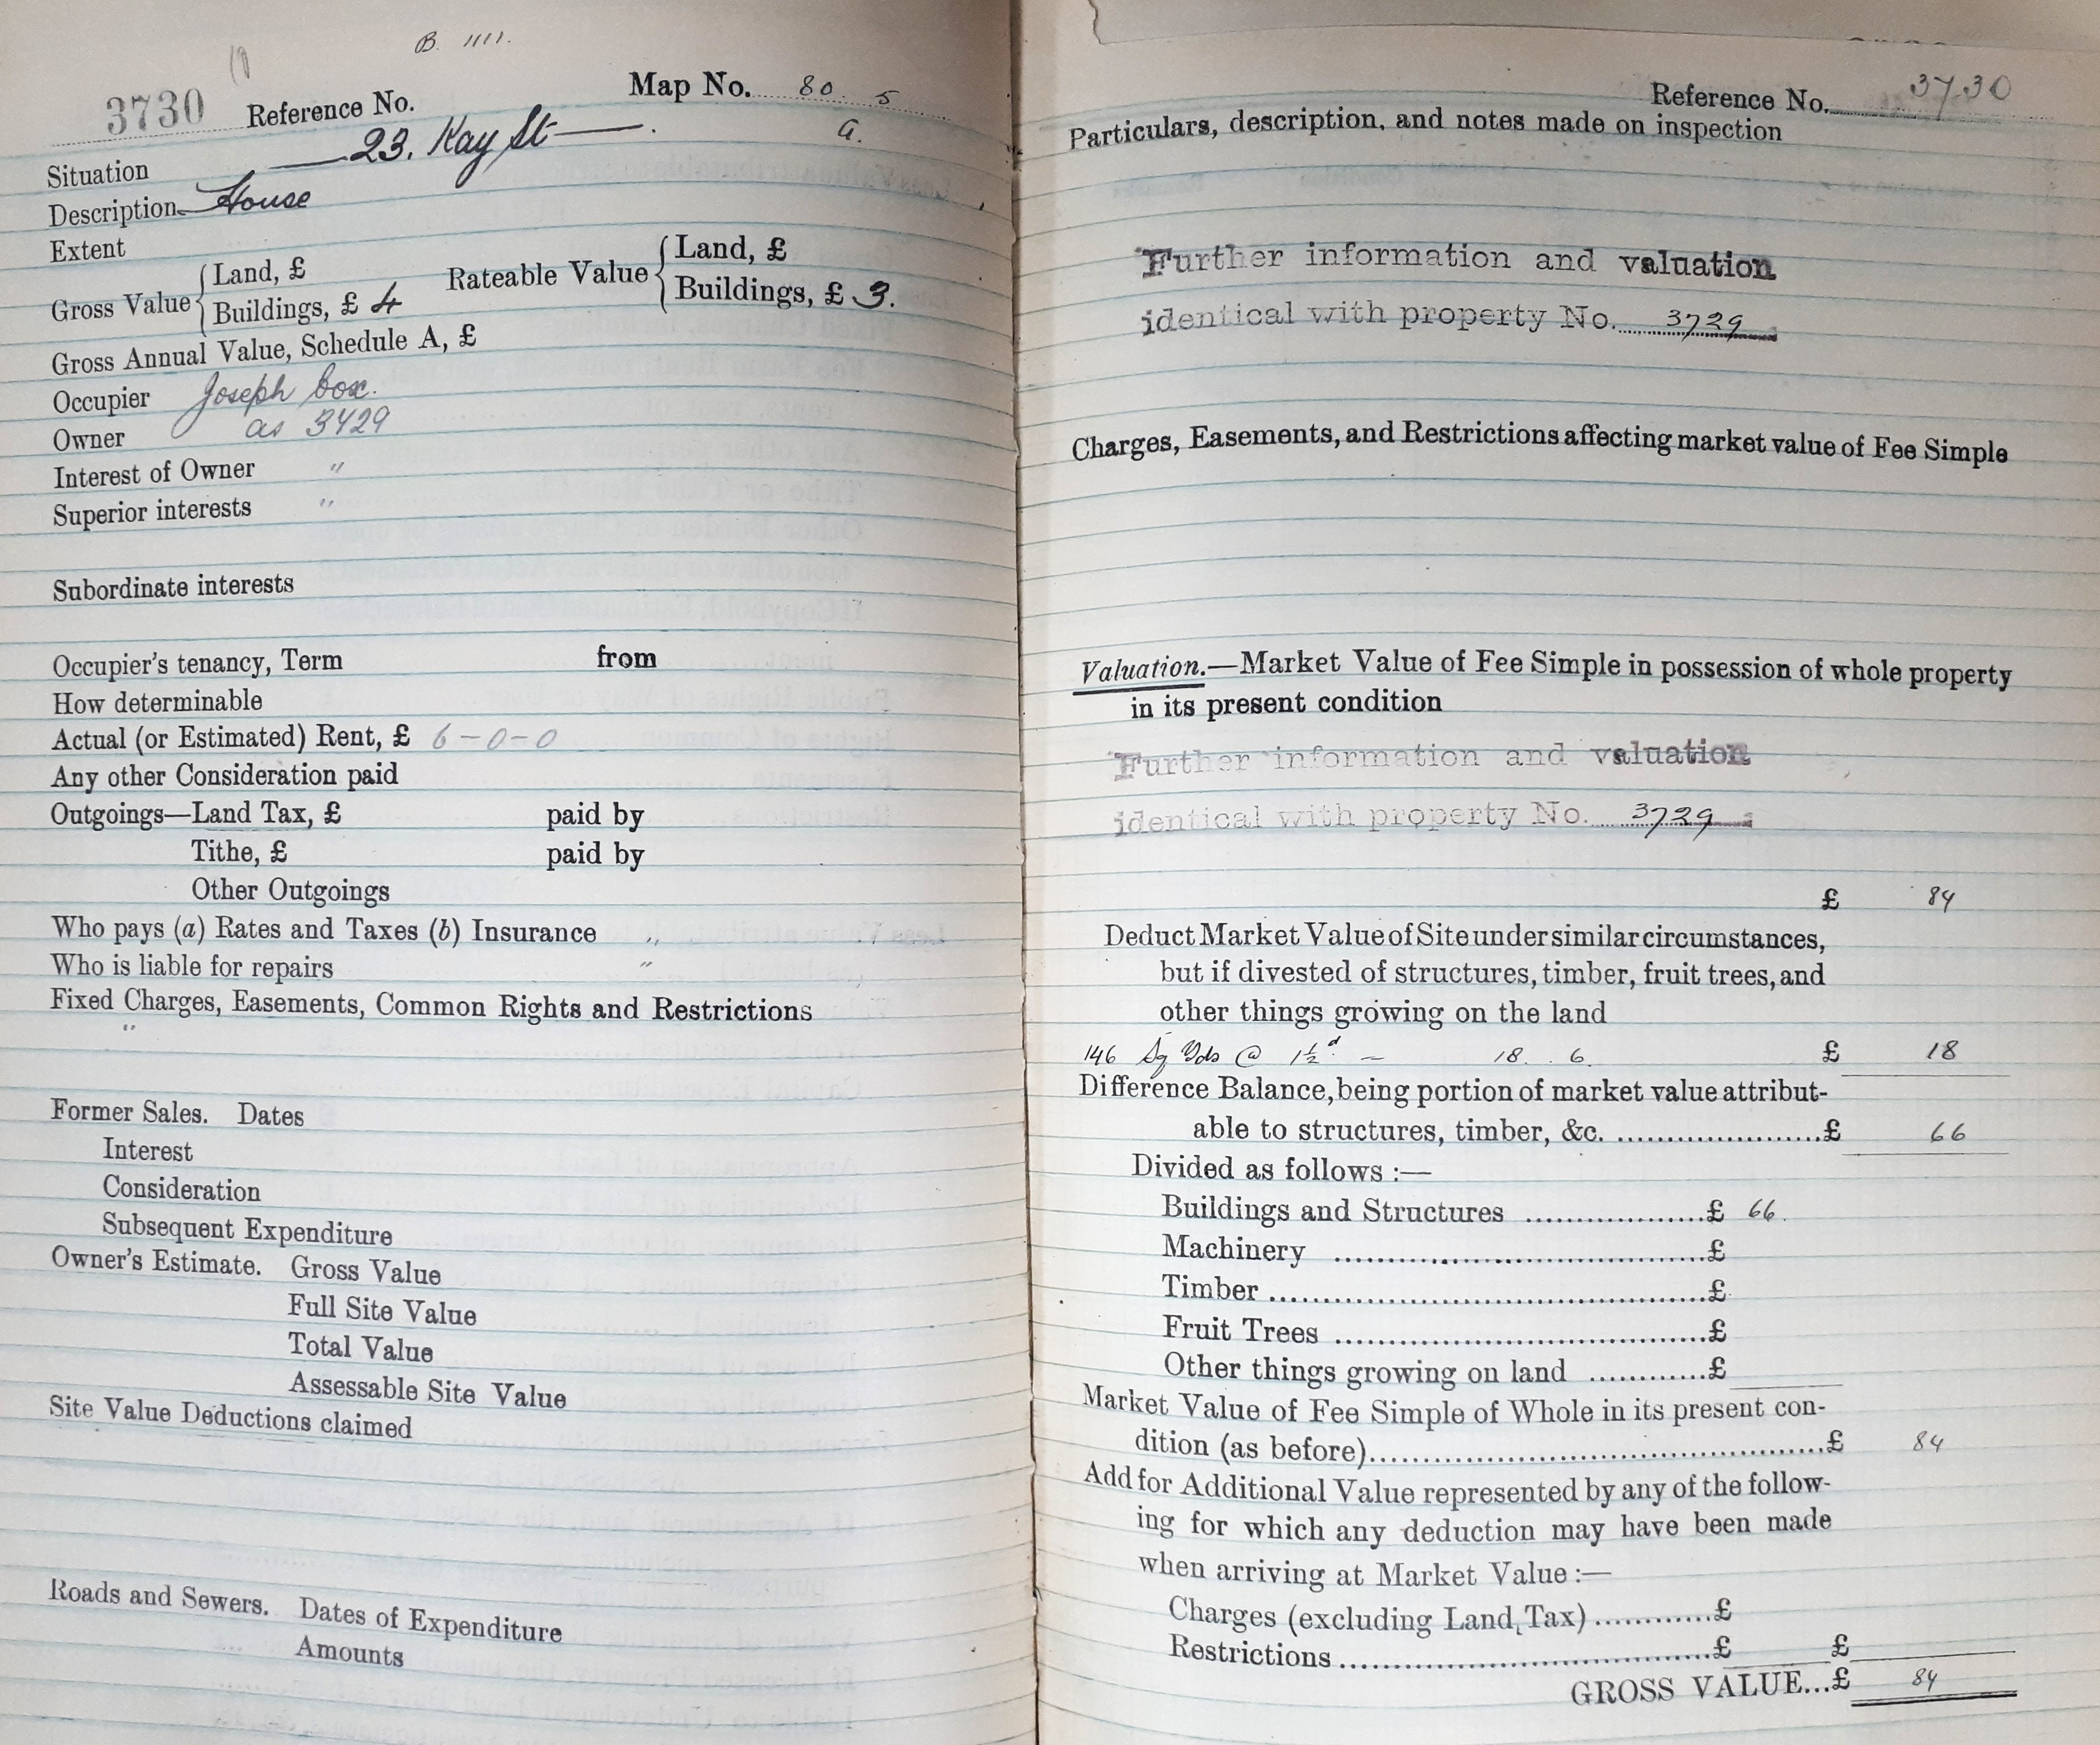 B. 1111.
3730 Reference No. Map No. 80. 5
a.
Situation 23, Kay St
Description House
Extent
Gross Value { Land, £
Buildings, £ 4
Rateable Value { Land, £
Buildings, £ 3.
Gross Annual Value, Schedule A, £
Occupier Joseph Cox.
Owner as 3429
Interest of Owner "
Superior interests "
Subordinate interests
Occupier's tenancy, Term from
How determinable
Actual (or Estimated) Rent, £ 6-0-0
Any other Consideration paid
Outgoings—Land Tax, £ paid by
Tithe, £ paid by
Other Outgoings
Who pays (a) Rates and Taxes (b) Insurance "
Who is liable for repairs "
Fixed Charges, Easements, Common Rights and Restrictions
"
Former Sales. Dates
Interest
Consideration
Subsequent Expenditure
Owner's Estimate. Gross Value
Full Site Value
Total Value
Assessable Site Value
Site Value Deductions claimed
Roads and Sewers. Dates of Expenditure
Amounts
Reference No. 3730
Particulars, description, and notes made on inspection
Further information and valuation
identical with property No. 3729
Charges, Easements, and Restrictions affecting market value of Fee Simple
Valuation.—Market Value of Fee Simple in possession of whole property
in its present condition
Further information and valuation
identical with property No. 3729
£ 84
Deduct Market Value of Site under similar circumstances,
but if divested of structures, timber, fruit trees, and
other things growing on the land
146 Sq Yds @ 1½d — 18. . 6. £ 18
Difference Balance, being portion of market value attribut-
able to structures, timber, &c. £ 66
Divided as follows :—
Buildings and Structures £ 66.
Machinery £
Timber £
Fruit Trees £
Other things growing on land £
Market Value of Fee Simple of Whole in its present con-
dition (as before) £ 84
Add for Additional Value represented by any of the follow-
ing for which any deduction may have been made
when arriving at Market Value :—
Charges (excluding Land Tax) £
Restrictions £ £
GROSS VALUE...£ 84